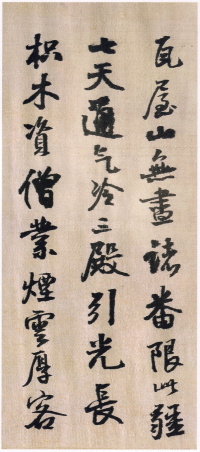 瓦屋山無晝諸番限此疆
七天通气冷三殿引光長
枳木資僧業煙雲厚客